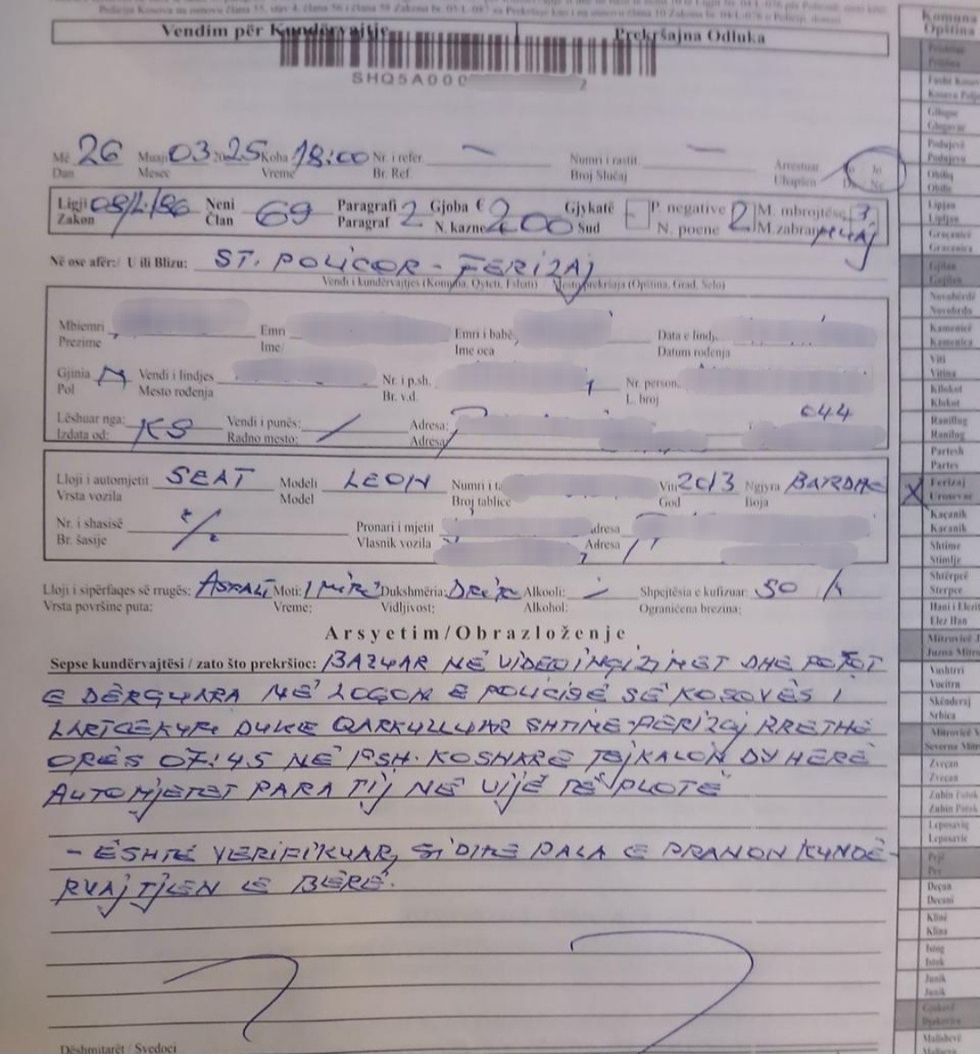 Vendim për Kundërvajtje Prekršajna Odluka
SHQ5A000 2
Më 26 Muaji 03 2025 Koha 18:00 Nr. i refer. Numri i rastit Arrestuar Jo
Dan Mesec Vreme Br. Ref. Broj Slučaj Uhapšen Ne
Ligji 08/L-186 Neni 69 Paragrafi 2 Gjoba € 200 Gjykatë P. negative 2 M. mbrojtëse 3
Zakon Član Paragraf N. kazne Sud N. poene M.zabrane MUAJ
Në ose afër:/ U ili Blizu: ST. POLICOR - FERIZAJ
Vendi i kundërvajtjes (Komuna, Qyteti, Fshati) Mesto prekršaja (Opština, Grad, Selo)
Mbiemri Emri Emri i babë. Data e lindj.
Prezime Ime Ime oca Datum rođenja
Gjinia M Vendi i lindjes Nr. i p.sh. Nr. person.
Pol Mesto rođenja Br. v.d. L. broj
Lëshuar nga: KS Vendi i punës: / Adresa: 044
Izdata od: Radno mesto: Adresa
Lloji i automjetit SEAT Modeli LEON Numri i ta Viti 2013 Ngjyra BARDHE
Vrsta vozila Model Broj tablice God Boja
Nr. i shasisë Pronari i mjetit Adresa
Br. šasije Vlasnik vozila Adresa
Lloji i sipërfaqes së rrugës: ASFALT Moti: I MIRË Dukshmëria: DRITË Alkooli: Shpejtësia e kufizuar: 50
Vrsta površine puta: Vreme: Vidljivost: Alkohol: Ograničena brezina:
Arsyetim/Obrazloženje
Sepse kundërvajtësi / zato što prekršioc: BAZUAR NË VIDEOINQIZIMET DHE FOTOT
E DËRGUARA NË LOGON E POLICISË SË KOSOVËS I
LARTCEKUR DUKE QARKULLUAR SHTIME-FERIZAJ RRETHË
ORËS 07:45 NË FSH. KOSHARE TEJKALON DY HERË
AUTOMJETET PARA TIJ NË VIJË TË PLOTË
- ËSHTË VERIFIKUAR, SIDHE PALA E PRANON KUNDË-
RVAJTJEN E BËRË.
Dëshmitarët / Svedoci
Komuna
Opština
Prishtinë
Priština
Fushë Kosovë
Kosova Polje
Gllogoc
Glogovac
Podujevë
Podujevo
Obiliq
Obilić
Lipjan
Lipljan
Graçanicë
Gracanica
Gjilan
Gnjilane
Novobërdë
Novobrdo
Kamenicë
Kamenica
Viti
Vitina
Kllokot
Klokot
Ranillug
Ranilug
Partesh
Partes
X Ferizaj
Urosevac
Kaçanik
Kacanik
Shtime
Stimlje
Shtërpcë
Sterpce
Hani i Elezit
Elez Han
Mitrovicë J
Juzna Mitro
Vushtrri
Vucitrn
Skënderaj
Srbica
Mitrovicë V
Severna Mitr
Zveçan
Zvecan
Zubin Potok
Zubin Potok
Leposaviq
Leposavic
Pejë
Pec
Deçan
Decani
Klinë
Klina
Istog
Istok
Junik
Junik
Gjakovë
Djakovica
Malishevë